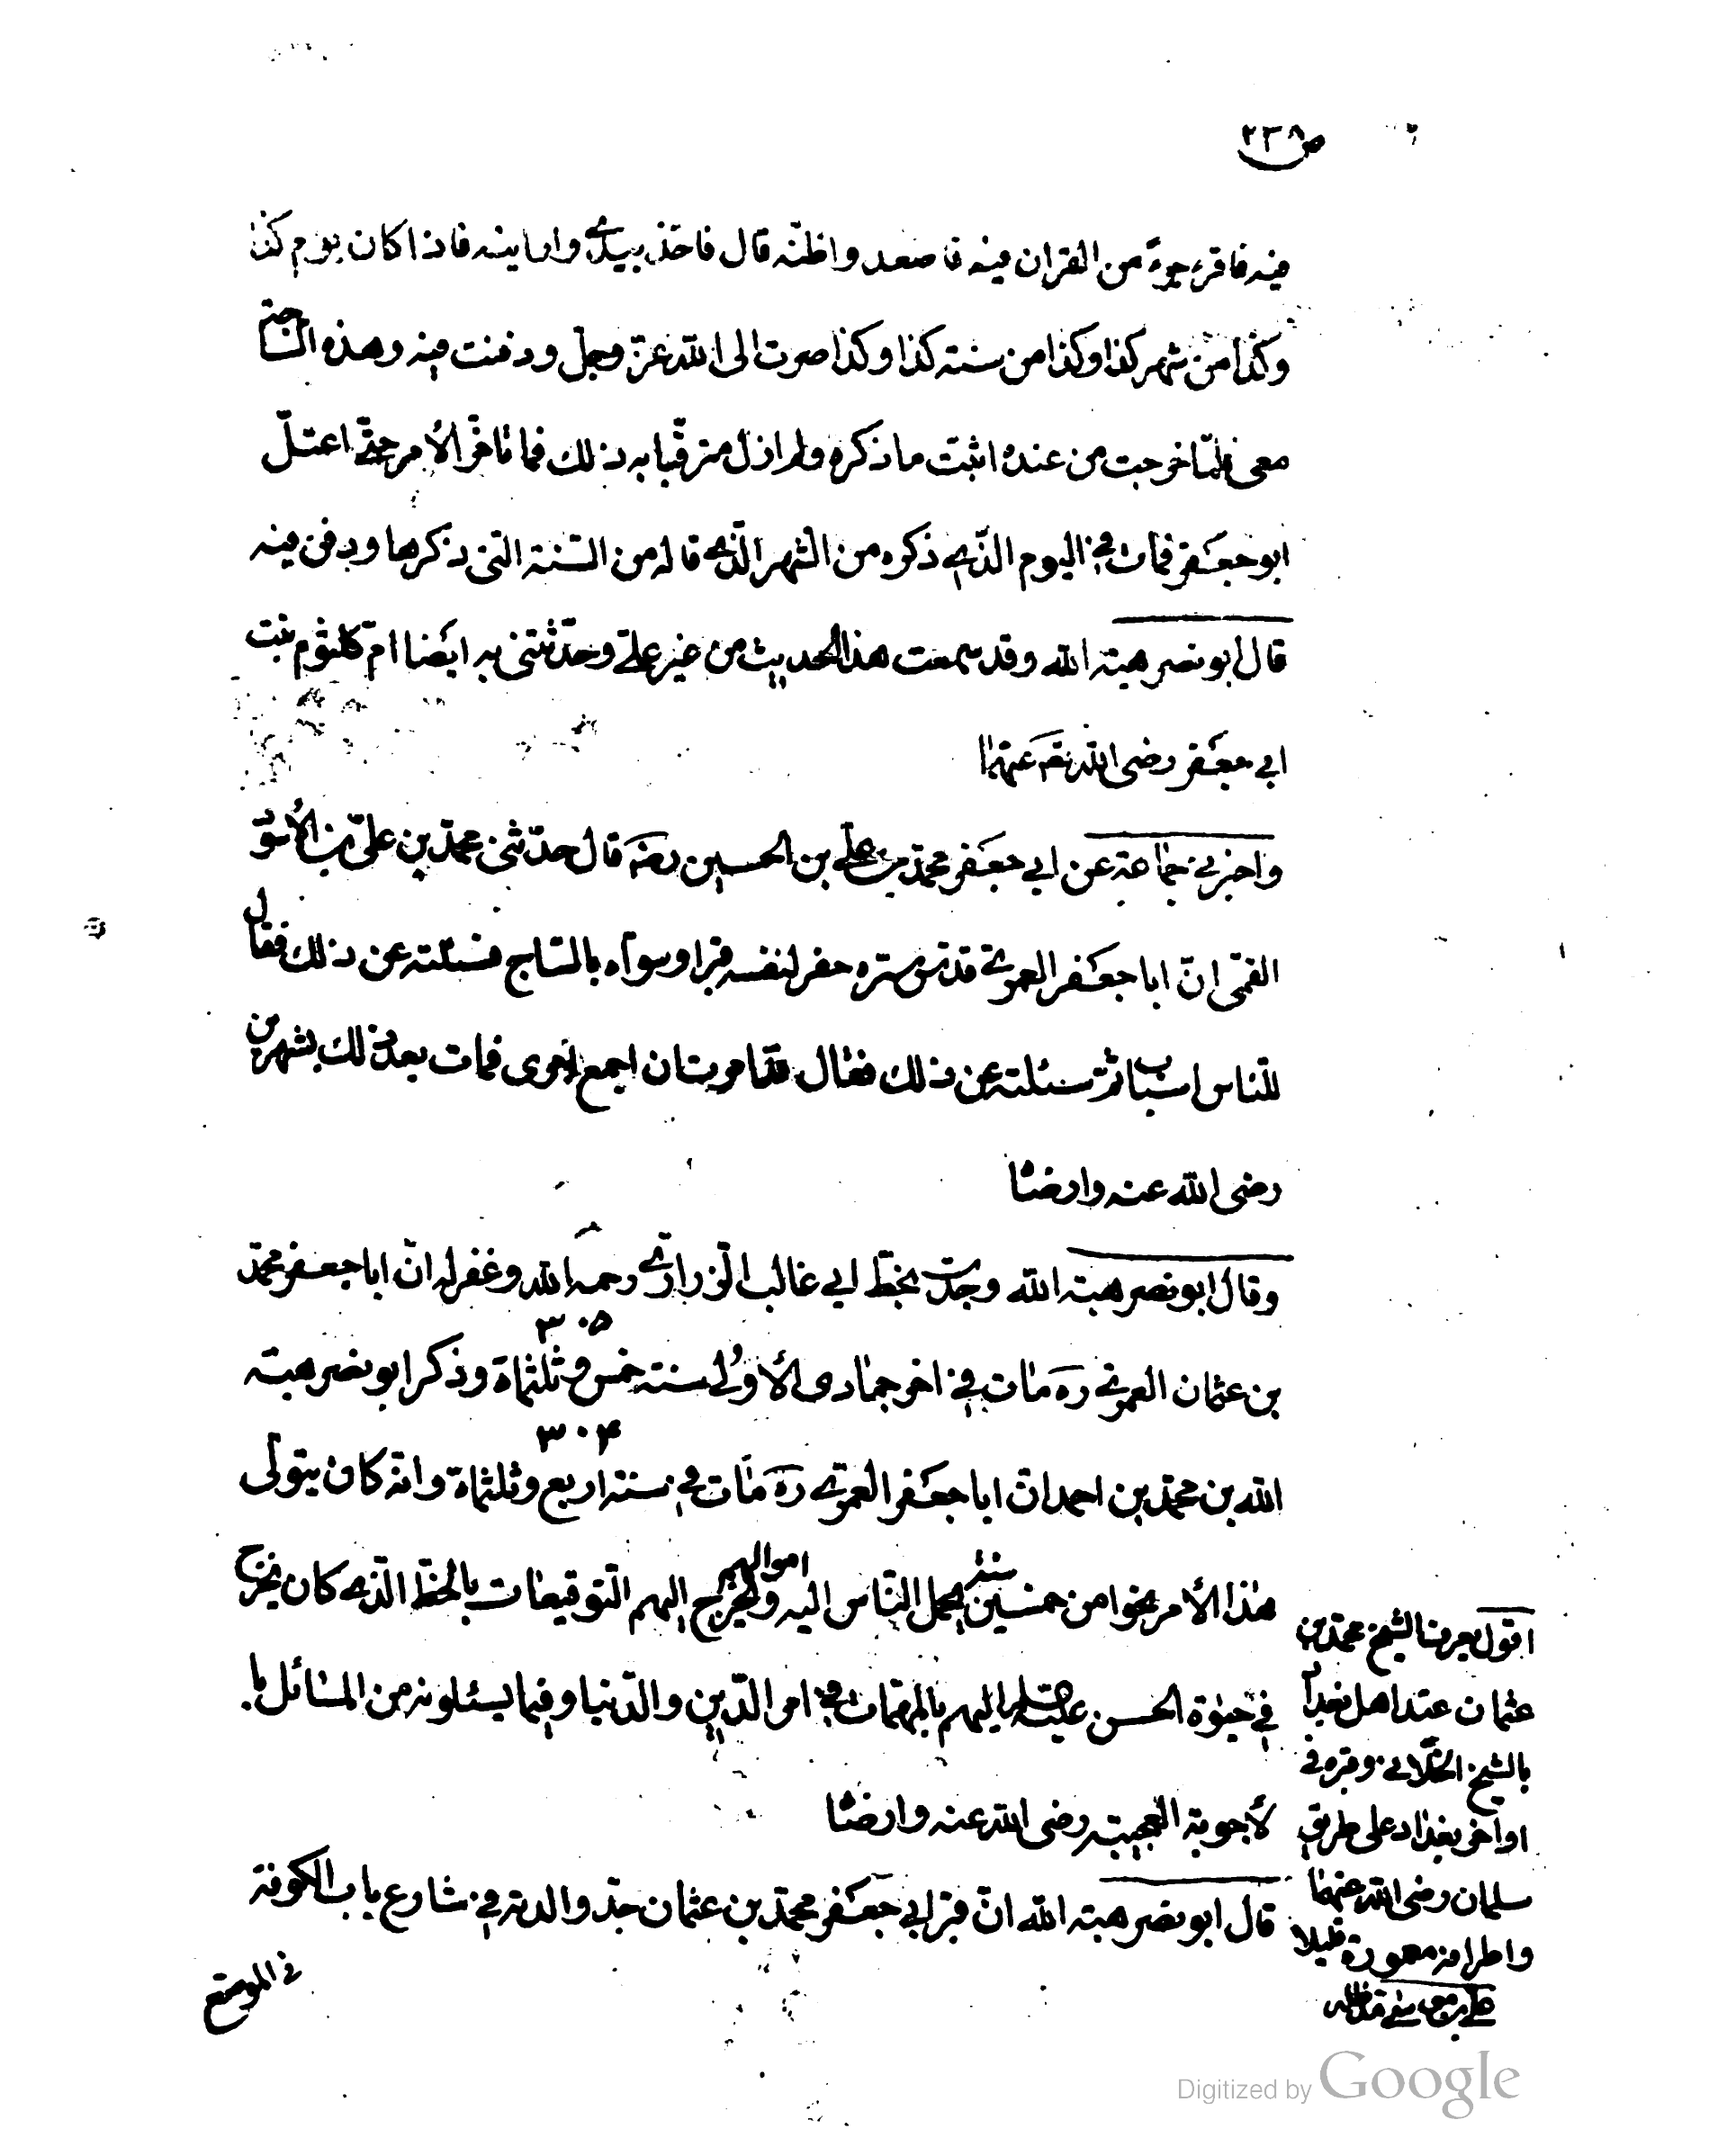 ص ٢٣٨
فيه فاقرء جزءً من القران فيه فاصعد واظنّه قال فاخذ بيدي وارانيه فاذا كان يوم كذا
وكذا من شهر كذا وكذا من سنته كذا وكذا صرت الى الله عزّ وجلّ ودفنت فيه وهذه الساجة
معى فلمّا خرجت من عنده اثبت ما ذكره ولم ازل مترقّبا به ذلك فما تاخّر الأمر حتّى اعتلّ
ابو جعفر فمات في اليوم الّذي ذكره من الشهر الّذي قاله من السّنة التى ذكرها ودفن فيه
قال ابو نصر هبة الله وقد سمعت هذا الحديث من غير علي وحدّثتنى به ايضا امّ كلثوم بنت
ابي جعفر رضى الله تعه عنهما
واخبرني جماعة عن ابي جعفر محمّد بن علي بن الحسين رضه قال حدّثنى محمّد بن علىّ بن الأسود
القمّى انّ ابا جعفر العمري قدّس سرّه حفر لنفسه قبرا وسوّاه بالسّاج فسئلته عن ذلك فقال
للنّاس اسباب ثمّ سئلته عن ذلك فقال قد امرت ان اجمع امرى فمات بعد ذلك بشهرين
رضى الله عنه وارضاه
وقال ابو نصر هبة الله وجدت بخطّ ابي غالب الزّراري رحمه الله وغفر له انّ ابا جعفر محمّد
٣٠٥
بن عثمان العمري ره مات في اخر جمادى الأولى سنة خمس وثلثماة وذكر ابو نصر هبة
٣٠۴
الله بن محمّد بن احمد انّ ابا جعفر العمري ره مات في سنة اربع وثلثماة وانّه كان يتولى
هذا الأمر نحوا من خمسين سنة يحمل النّاس اليه اموالهم ويخرج اليهم التّوقيعات بالخطّ الّذي كان يخرج
في حيوة الحسن عليه السلام اليهم بالمهمّات في امر الدّين والدّنيا وفيما يسئلونه من المسائل با
لأجوبة العجيبة رضى الله عنه وارضاه
قال ابو نصر هبة الله انّ قبر ابي جعفر محمّد بن عثمان عند والدته في شارع باب الكوفة
في الموضع
اقول يعرف الشيخ محمّد بن
عثمان عند اهل بغداد
بالشيخ الخلّاني وقبره في
اواخر بغداد على طريق
سلمان رضى الله عنهما
واطرافه معمورة قليلا
Digitized by Google